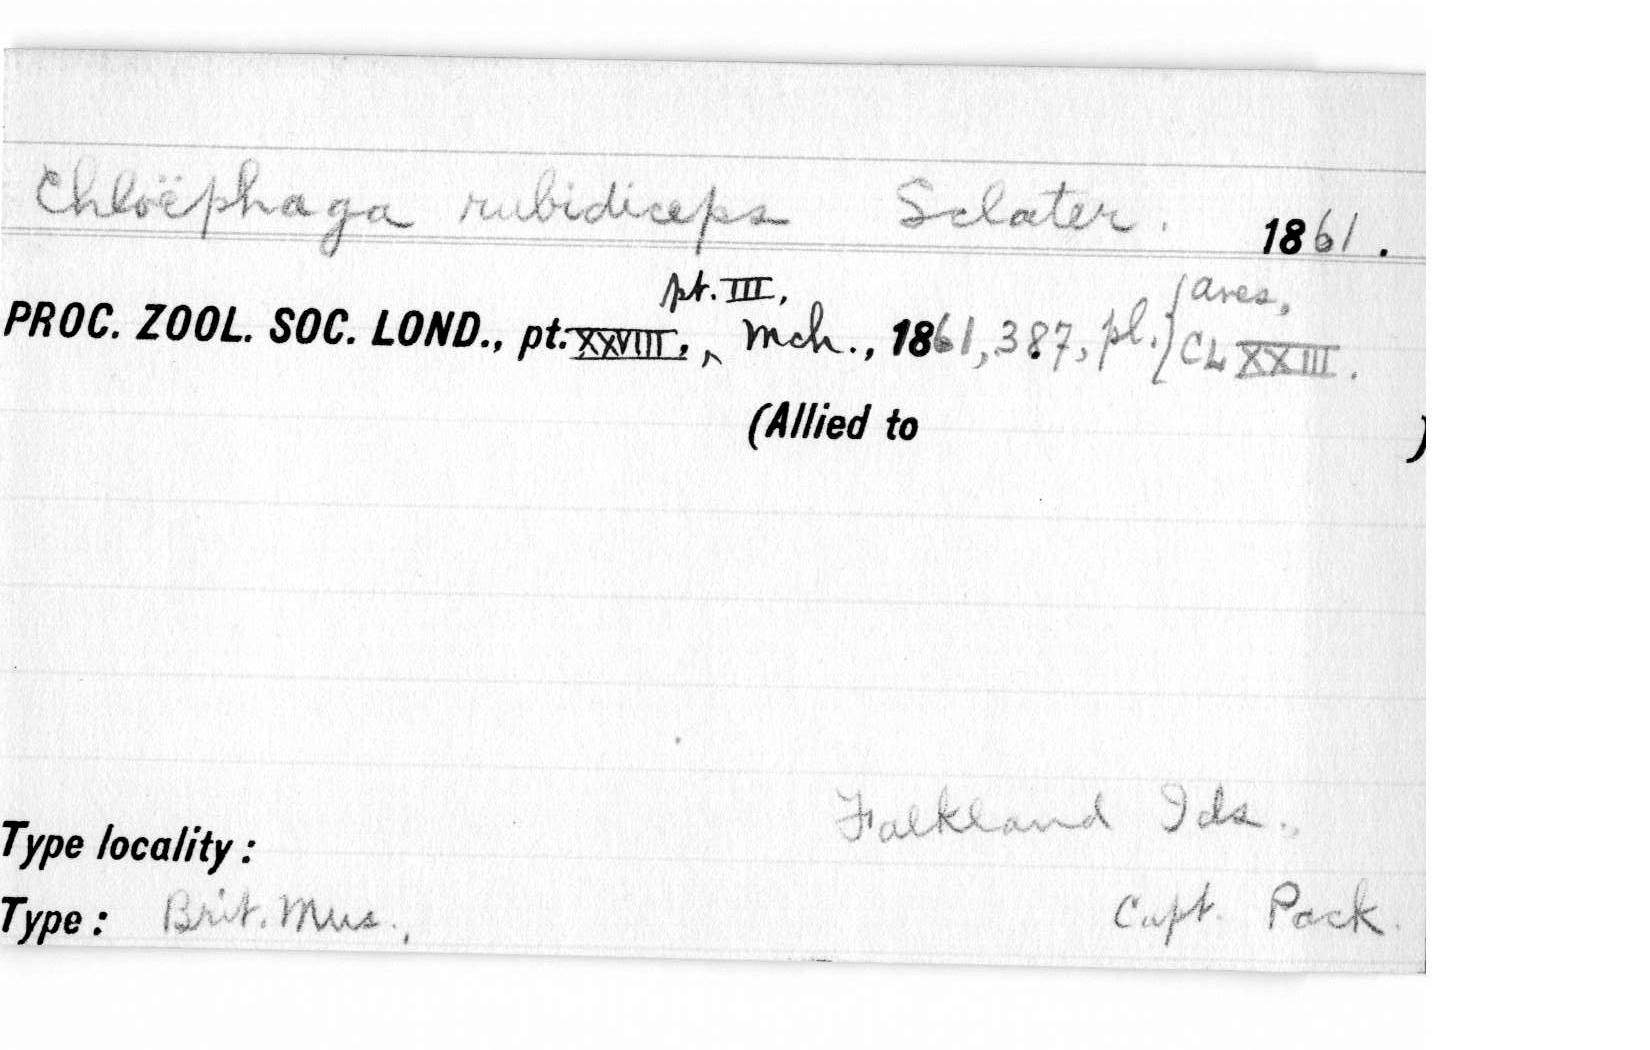 Chloëphaga rubidiceps Sclater. 1861.
pt. III,
PROC. ZOOL. SOC. LOND., pt. XXVIII, ‸ Mch., 1861, 387, pl. {Aves, CLXXIII.
(Allied to )
Falkland Ids.,
Type locality:
Type: Brit. Mus., Capt. Pack.